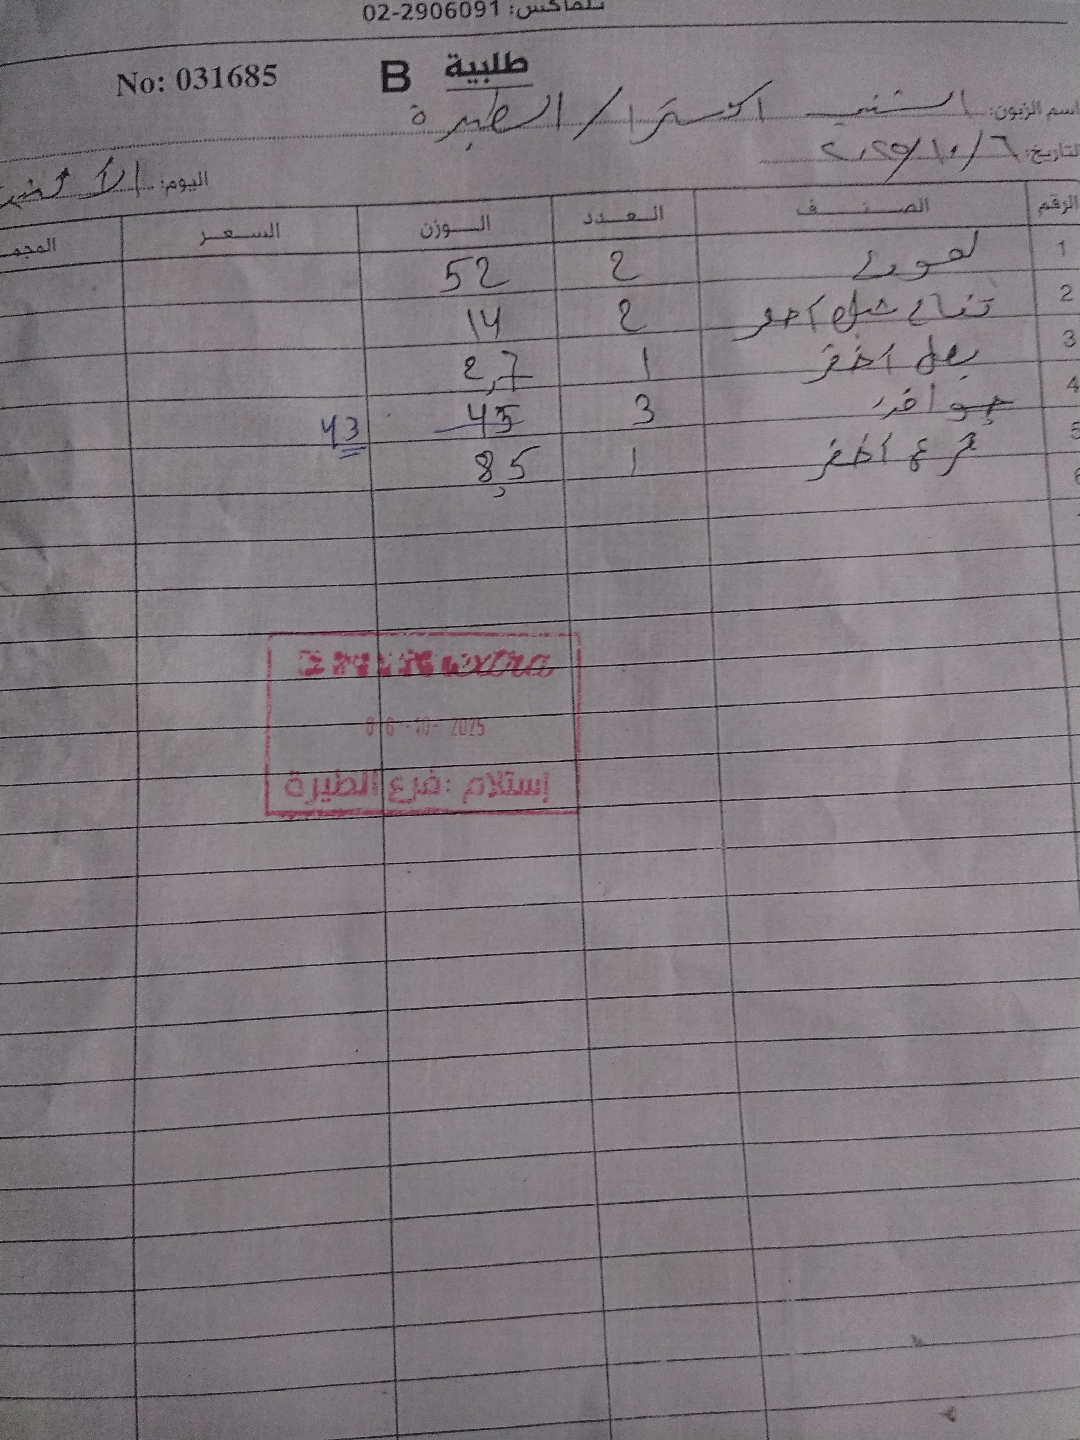 تلفاكس: 02-2906091
No: 031685 B طلبية
اسم الزبون: الشني اكسترا / الطيرة
التاريخ: ٢٠٢٥/١٠/٦
اليوم: الأثنين
الرقم الصنف العدد الوزن السعر المجم
1 2 52
2 تفاح احمر 2 14
3 بصل اخضر 1 2,7
4 جوافة 3 45 43
5 قرع اخضر 1 8,5
6
extra
06-10-2025
إستلام: فرع الطيرة